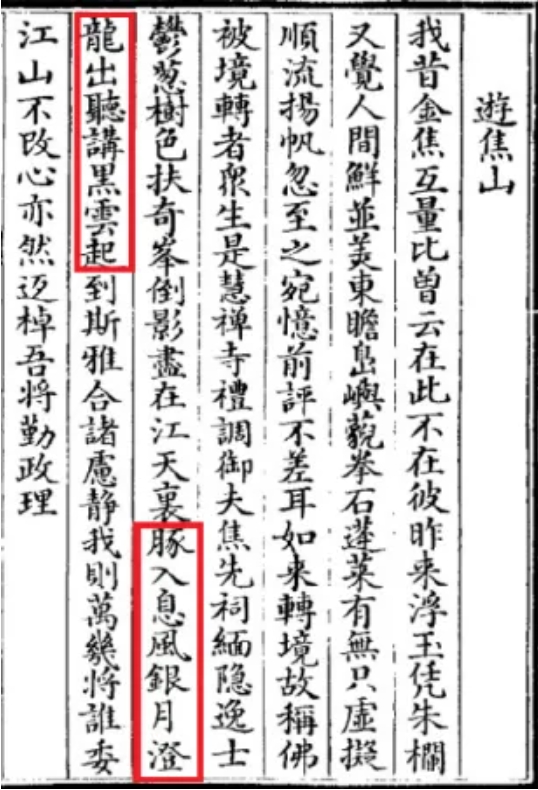 遊焦山
我昔金焦互量比曾云在此不在彼昨来浮玉凭朱欄
又覺人間鮮並美東瞻島嶼藐拳石蓬萊有無只虛擬
順流揚帆忽至之宛憶前評不差耳如来轉境故稱佛
被境轉者衆生是慧禅寺禮調御夫焦先祠緬隐逸士
鬱葱樹色扶奇峯倒影盡在江天裏豚入息風銀月澄
龍出聽講黑雲起到斯雅合諸慮静我則萬幾將誰委
江山不改心亦然迈棹吾将勤政理